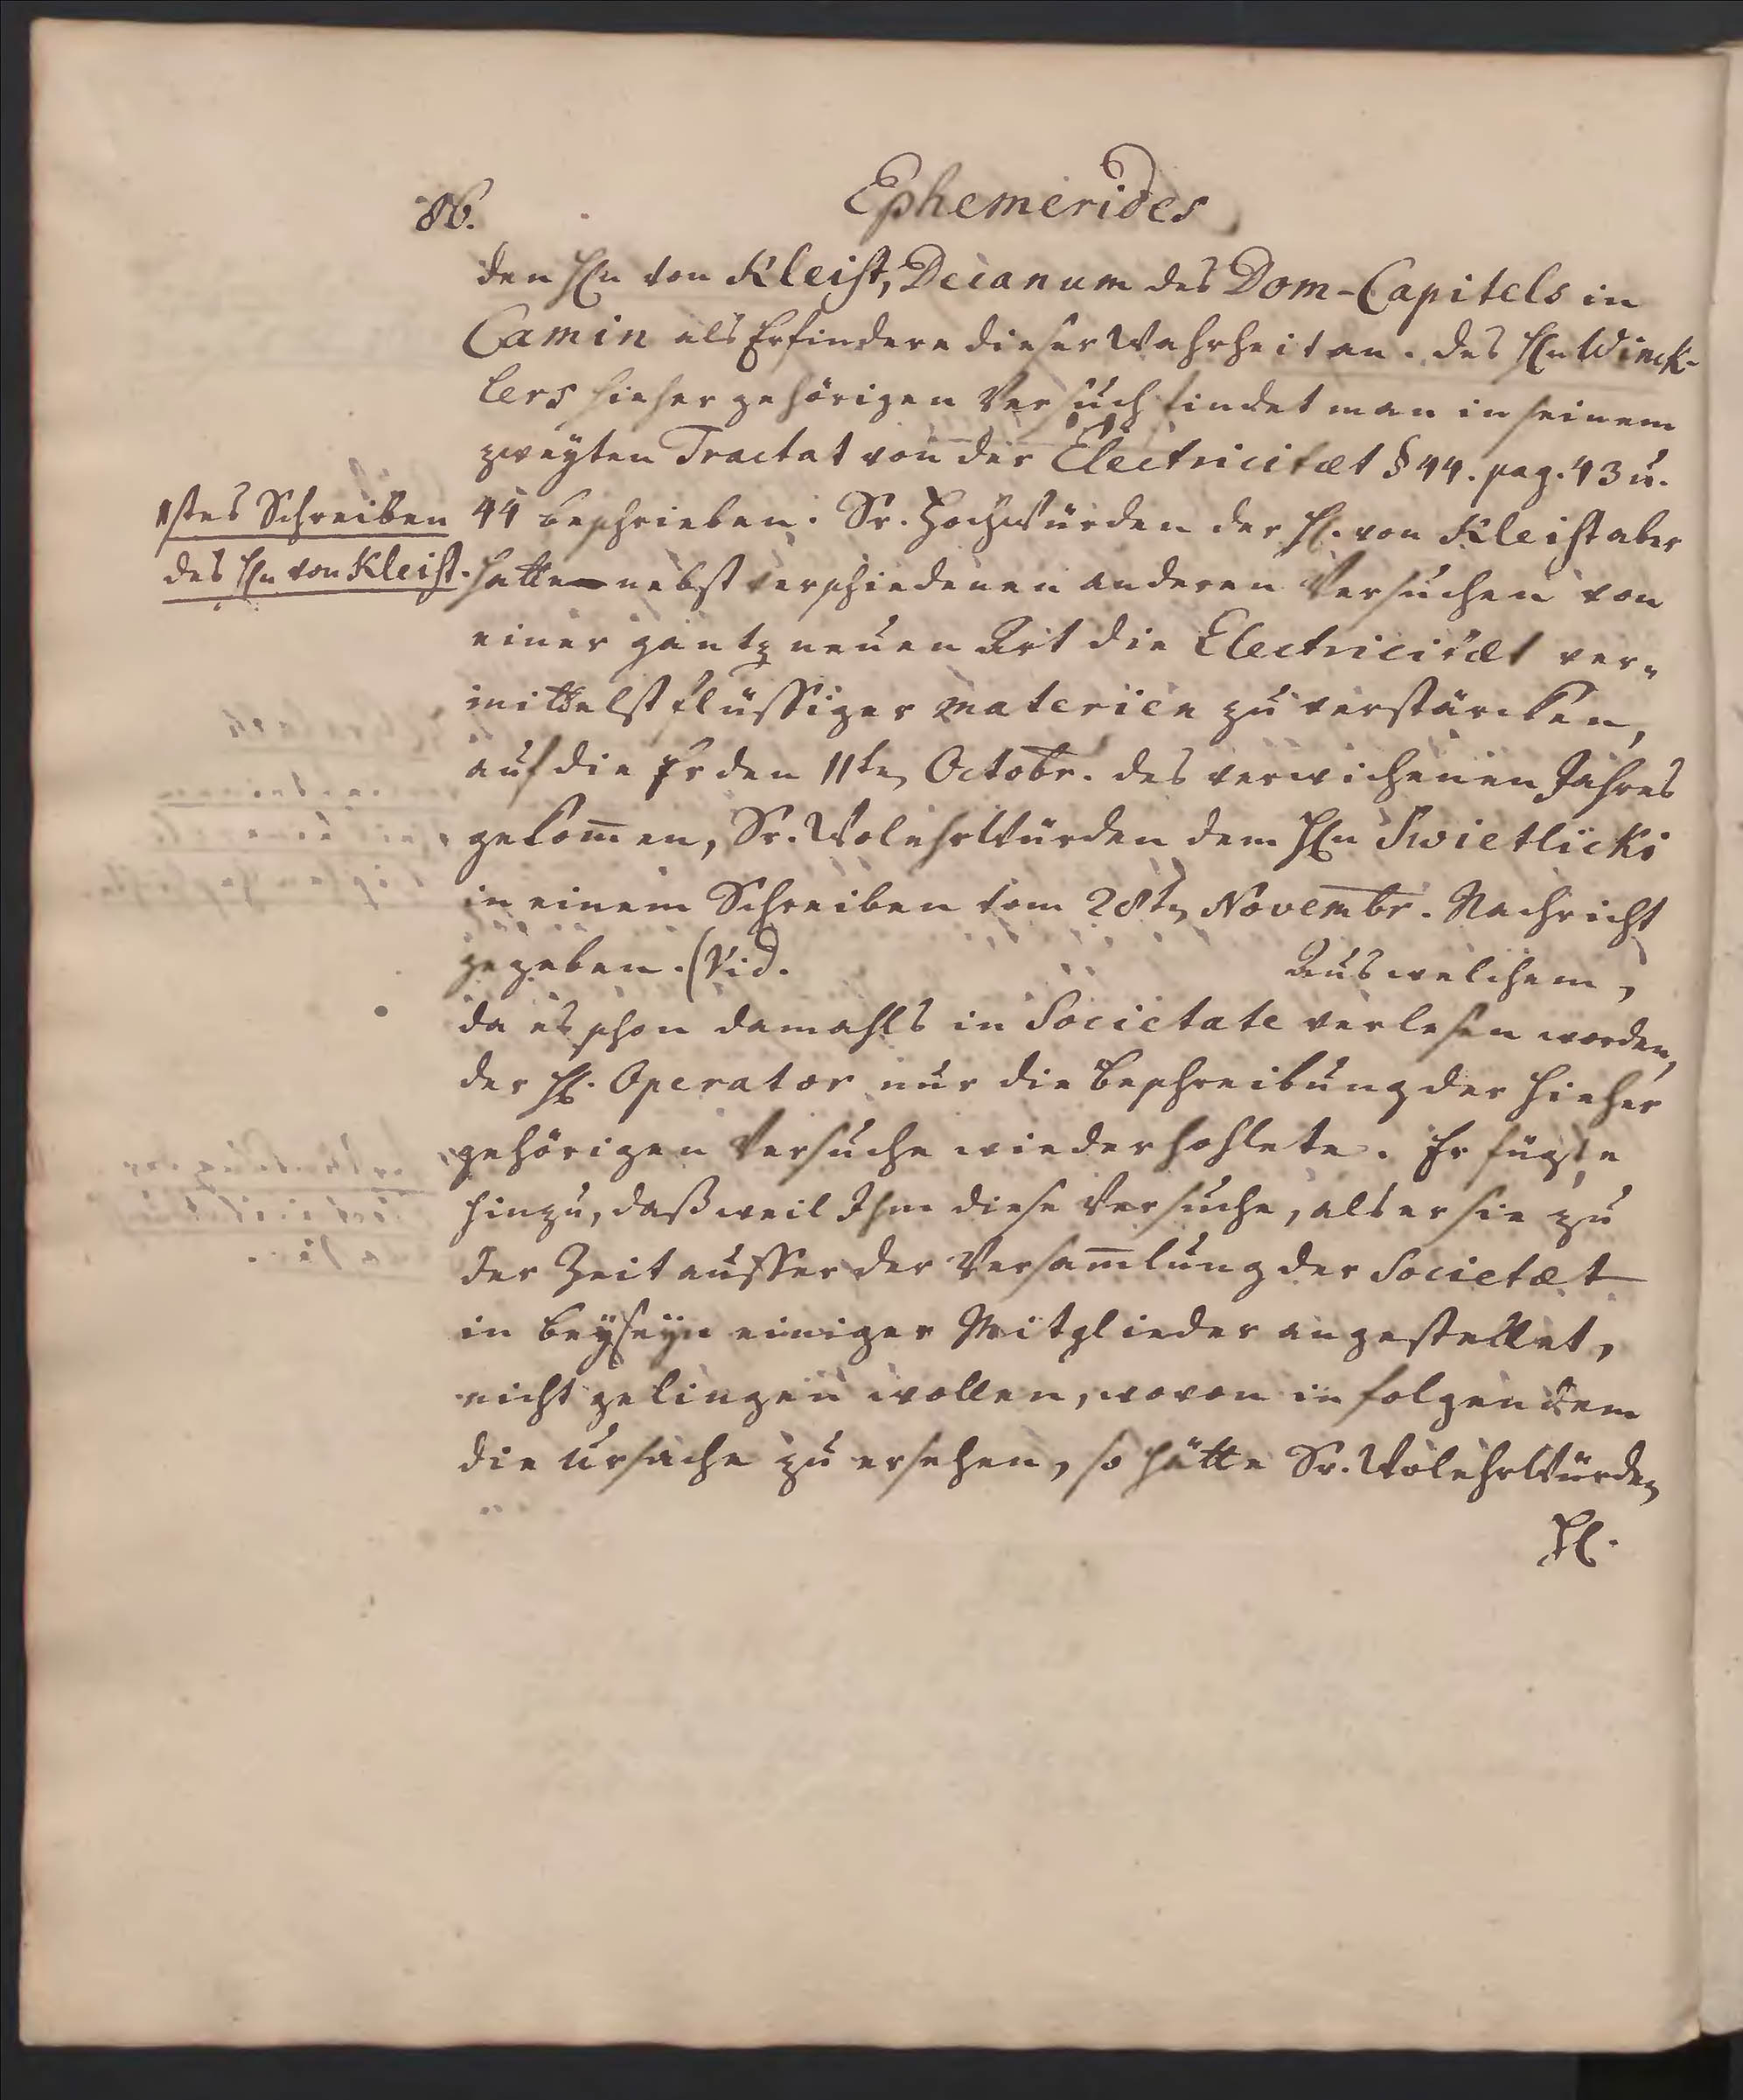 86.
Ephemerides
den Hn von Kleist, Decanum des Dom-Capitels in
Camin als Erfindern dieser Wahrheit an. des Hn Winck-
lers hieher gehörigen Versuch findet man in seinem
zweyten Tractat von der Electricitæt § 44. pag. 43 u.
1stes Schreiben
des Hn von Kleist.
44 beschrieben. Sr. Hochwürden der H. von Kleist aber
hatte nebst verschiedenen anderen Versuchen von
einer gantz neuen Art die Electricitæt ver-
mittelst flüssiger Materien zu verstärcken,
auf die Er den 11ten Octobr. des verwichenen Jahres
gekom̅en, Sr. WolehrWürden dem Hn Swietlicki
in einem Schreiben vom 28ten Novembr. Nachricht
gegeben. (Vid. Aus welchem,
da es schon damahls in Societate verlesen worden,
der H. Operator nur die Beschreibung der hieher
gehörigen Versuche wiederhohlete. Er fügte
hinzu, daß weil Ihm diese Versuche, als er sie zu
der Zeit ausser der Versam̅lung der Societæt
in beyseyn einiger Mitglieder angestellet,
nicht gelingen wollen, wovon in folgendem
die Ursache zu ersehen, so hätte Sr. WolehrWürden
H.